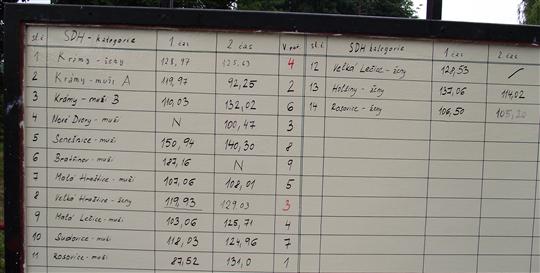 st.č SDH - kategorie 1 čas 2 čas V.poř. st.č SDH kategorie 1 čas 2 čas
1 Krámy - ženy 128,97 125,63 4 12 Velká Lečice - ženy 120,53 /
2 Krámy - muži A 119,97 92,25 2 13 Hošťiny - ženy 137,06 114,02
3 Krámy - muži B 110,03 132,02 6 14 Rosovice - ženy 106,50 105,20
4 Nové Dvory - muži N 100,47 3
5 Senešnice - muži 150,94 140,30 8
6 Bratřínov - muži 187,16 N 9
7 Malá Hraštice - muži 107,06 108,01 5
8 Velká Hraštice - ženy 119,93 129,03 3
9 Malá Lečice - muži 103,06 125,71 4
10 Sudovice - muži 118,03 124,96 7
11 Rosovice - muži 87,52 131,0 1